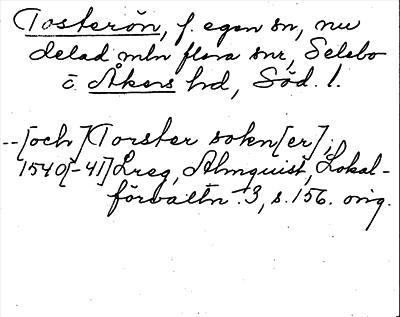 Tosterön, f. egen sn, nu
delad mln flera snr, Selebo
o. Åkers hd, Söd. l.
--[och] Torster sokn[er];
1540[-41] Lreg, Almquist, Lokal-
förvaltn. 3, s. 156. orig.